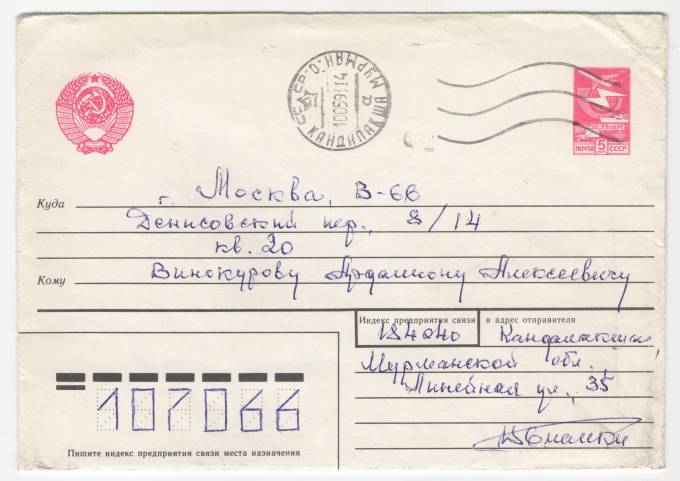 СССР МУРМАН. О.
100591 14
КАНДАЛАКША
ПОЧТА 5К СССР
Куда г. Москва, В-66
Денисовский пер., 8/14
кв. 20
Кому Винокурову Ардалиону Алексеевичу
Индекс предприятия связи и адрес отправителя
184040 Кандалакша,
Мурманской обл.,
Линейная ул., 35
107066
Пишите индекс предприятия связи места назначения